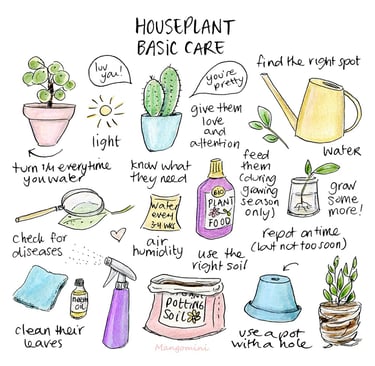 HOUSEPLANT
BASIC CARE
luv
you!
you're
pretty
find the right spot
light
give them
love
and
attention
water
turn 1/4 everytime
you water
know what
they need
feed
them
(during
growing
season
only)
grow
some
more!
water
every
3-4 WKS
BIO
PLANT
FOOD
check for
diseases
air
humidity
use the
right soil
repot on time
(but not too soon)
neem
oil
POTTING
SOIL
clean their
leaves
Mangomini
use a pot
with a hole